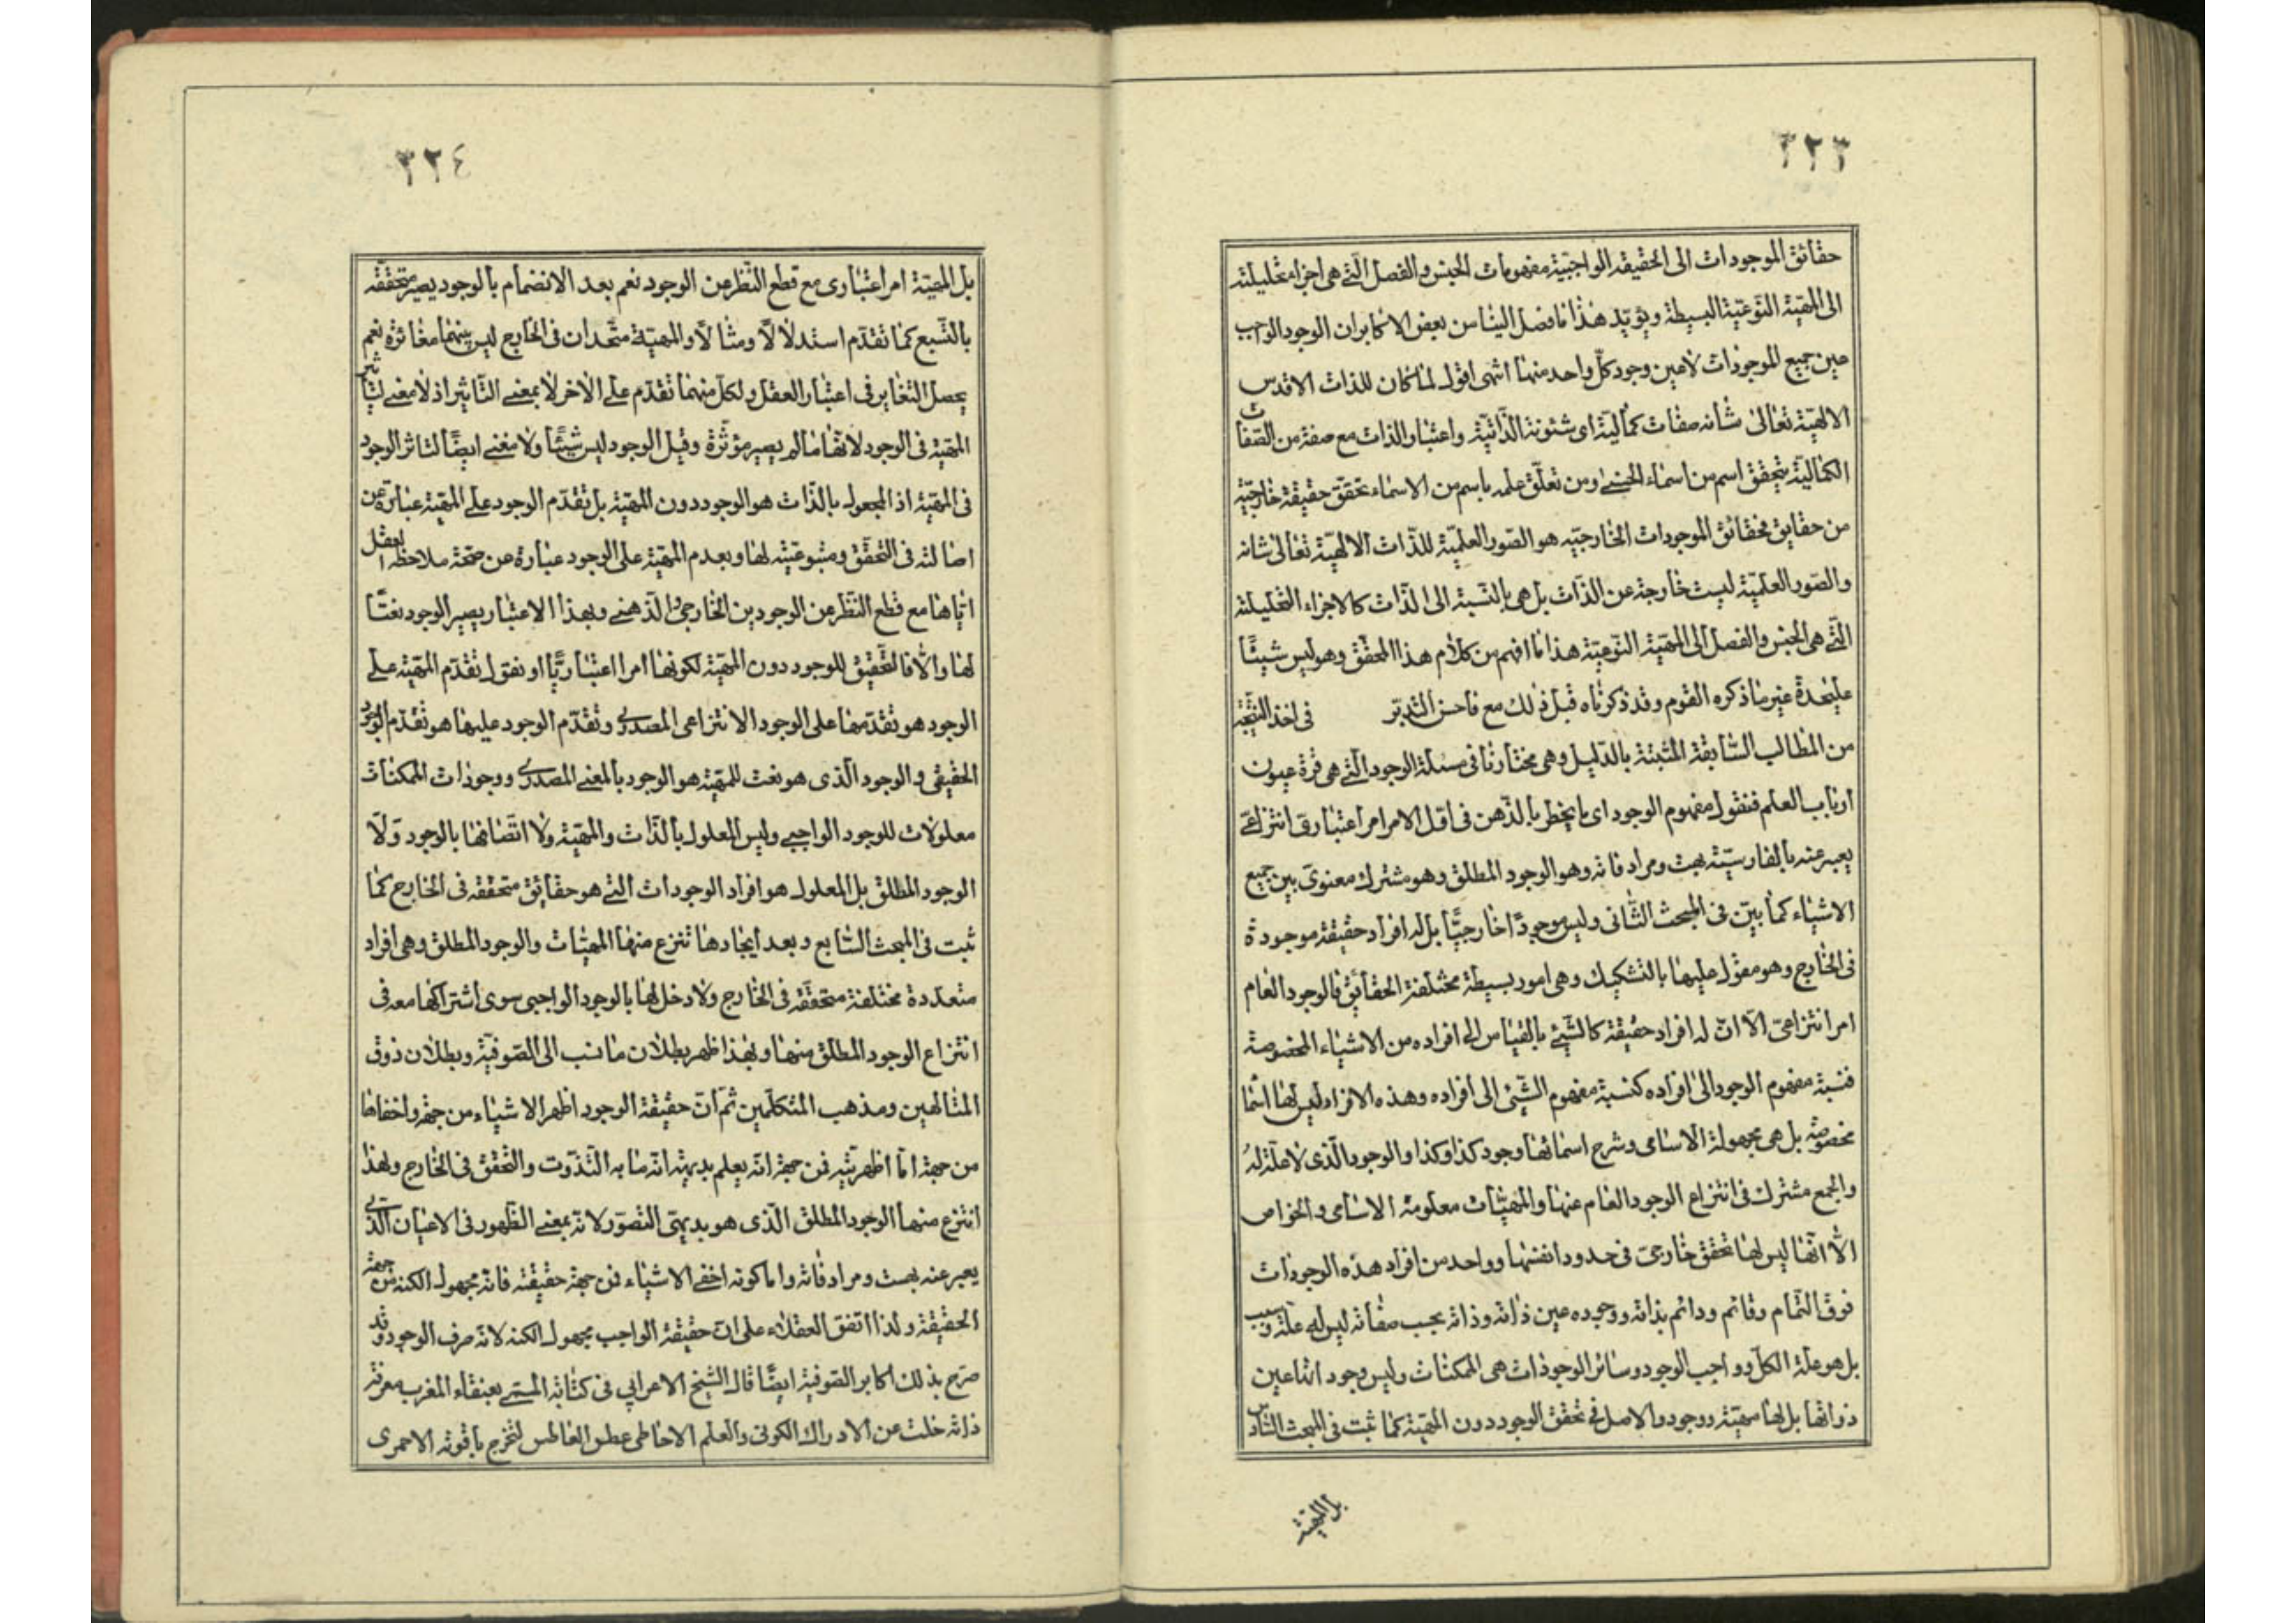 ٣٢٣
حقائق الموجودات الى الحقيقه الواجبيّة مفهومات الجنس والفصل الّتى هى اجزاء تحليليّة
الى المهيّة النّوعيّة البسيطة ويؤيّد هذا ما فصل الينا من بعض الاكابر ان الوجود الواجب
عين جميع الموجودات لا عين وجود كلّ واحد منها انتهى اقول لمّا كان للذات الاقدس
الالهيّة تعالى شانه صفات كماليّة اى شئونه الذّاتيّة واعتبار الذات مع صفة من الصّفات
الكماليّة يتحقق اسم من اسماء الحسنى ومن تعلّق علمه باسم من الاسماء تحقق حقيقة خارجيّة
من حقايق فحقائق الموجودات الخارجيّه هو الصّور العلميّة للذّات الالهيّة تعالى شانه
والصّور العلميّة ليست خارجة عن الذّات بل هى بالنّسبة الى الذّات كالاجزاء التحليليّة
الّتى هى الجنس والفصل الى المهيّة النّوعيّة هذا ما افهم من كلام هذا المحقّق وهو ليس شيئًا
عليحدة غير ما ذكره القوم وقد ذكرناه قبل ذلك مع فاحسن التّدبّر فى اخذ النّتيجة
من المطالب السّابقة المثبتة بالدّليل وهى مختارنا فى مسئلة الوجود الّتى هى قرة عيون
ارباب العلم فنقول مفهوم الوجود اى ما يخطر بالذّهن فى اوّل الامر امر اعتبارى انتزاعى
يعبر عنه بالفارسيّة بهست ومرادفاته وهو الوجود المطلق وهو مشترك معنوى بين جميع
الاشياء كما بيّن فى المبحث الثّانى وليس موجودًا خارجيًّا بل له افراد حقيقة موجودة
فى الخارج وهو مقول عليها بالتشكيك وهى امور بسيطة مختلفة الحقائق فالوجود العام
امر انتزاعىّ الّا انّ له افراد حقيقة كالشّيئ بالقياس الى افراده من الاشياء المخصوصة
فنسبة مفهوم الوجود الى افراده كنسبة مفهوم الشّيئ الى افراده وهذه الافراد ليس لها اسما
مخصوصة بل هى مجهولة الاسامى وشرح اسمائها وجود كذا وكذا والوجود الّذى لا علّة لهُ
والجمع مشترك فى انتزاع الوجود العام عنها والمهيّات معلومة الاسامى والخواص
الّا انّها ليس لها تحقق خارجىّ فى حدود انفسها وواحد من افراد هذه الوجودات
فوق التّمام وقائم ودائم بذاته ووجوده عين ذاته وذاته بحسب صفاته ليس له علّة وسبب
بل هو علّة الكلّ وواجب الوجود وسائر الوجودات هى الممكنات وليس وجود اتها عين
ذواتها بل لها مهيّة ووجود والاصل فى تحقق الوجود دون المهيّة كما ثبت فى المبحث السّادس
بل المهيّة
٣٢٤
بل المهيّة امر اعتبارى مع قطع النّظر من الوجود نعم بعد الانضمام بالوجود يصير متحققه
بالتّبع كما تقدّم استدلالًا ومثالًا والمهيّة متّحدان فى الخارج ليس بينهما مغائرة نعم
يحصل التغاير فى اعتبار العقل ولكلّ منهما تقدّم على الاخر لا بمعنى التّاثير اذ لا معنى لتاثير
المهيّة فى الوجود لانّها ما لم يصير مؤثّرة وقبل الوجود ليس شيئًا ولا معنى ايضًا لتاثر الوجود
فى المهيّة اذ المجعول بالذّات هو الوجود دون المهيّة بل تقدّم الوجود على المهيّة عبارة عن
اصالته فى التّحقّق ومتبوعيّته لها وبعدم المهيّة على الوجود عبارة عن صحّة ملاحظة العقل
ايّاها مع قطع النّظر من الوجودين الخارجى والذهنى وبهذا الاعتبار يصير الوجود نعتًا
لها والّا فالتّحقيق للوجود دون المهيّة لكونها امرا اعتباريًّا او نقول تقدّم المهيّة على
الوجود هو تقدّمها على الوجود الانتزاعى المصدرى وتقدّم الوجود عليها هو تقدّم الوجود
الحقيقى والوجود الّذى هو نعت للمهيّة هو الوجود بالمعنى المصدرى ووجودات الممكنات
معلولات للوجود الواجبى وليس المعلول بالذّات والمهيّة ولا اتّصافها بالوجود وَلَا
الوجود المطلق بل المعلول هو افراد الوجودات الّتى هو حقائق متحققه فى الخارج كما
ثبت فى المبحث السّابع وبعد ايجادها تنتزع منها المهيّات والوجود المطلق وهى افراد
متعدّدة مختلفة متحقّقه فى الخارج ولا دخل لها بالوجود الواجبى سوى اشتراكها معه فى
انتزاع الوجود المطلق منها وبهذا ظهر بطلان ما نسب الى الصّوفيّة وبطلان ذوق
المتالهين ومذهب المتكلّمين ثمّ انّ حقيقة الوجود اظهر الاشياء من جهة واخفاها
من جهة امّا اظهريّته فمن جهة انّه يعلم بديهة انّه ما به التّذوّت والتّحقق فى الخارج ولهذا
انتزع منها الوجود المطلق الّذى هو بديهىّ التّصوّر لانّه بمعنى الظّهور فى الاعيان الّذى
يعبر عنه بهست ومرادفاته واما كونه اخفى الاشياء فمن جهة حقيقته فانّه مجهول الكنه من جهة
الحقيقة ولذا اتفق العقلاء على انّ حقيقة الواجب مجهول الكنه لانّه صرف الوجود وقد
صرّح بذلك اكابر الصّوفية ايضًا قال الشّيخ الاعرابى فى كتابه المسمّى بعنقاء المغرب معرفة
ذاته خلت من الادراك الكونى والعلم الاحاطى عطس الغاطس لتخرج ياقوته الاحمرى